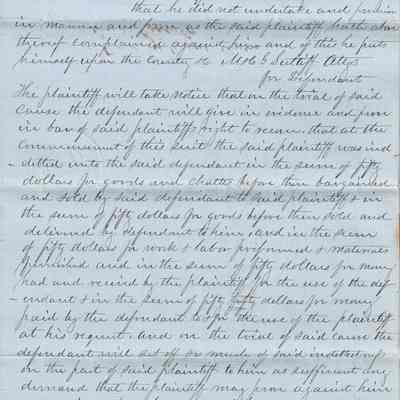 that he did not undertake and promise
in manner and form as the said plaintiff hath above
thereof complained against him and of this he puts
himself upon the Country &c Attys
for Defendant
The plaintiff will take notice that on the trial of said
cause the defendant will give in evidence and prove
in bar of said plaintiffs right to recover that at the
commencement of this suit the said plaintiff was ind
- debted unto the said defendant in the sum of fifty
dollars for goods and chattles before then bargained
and sold by said defendant to said plaintiff & in
the sum of fifty dollars for goods before then sold and
delivered by defendant to him, and in the sum
of fifty dollars for work & labor preformed & materials
furnished and in the sum of fifty dollars for money
had and receivd by the plaintiff for the use of the def
- endant & in the sum of fifty dollars for money
paid by the defendant to & for the use of the plaintiff
at his request. And on the trial of said cause the
defendant will set off so much of said indebtedness
on the part of said plaintiff to him as sufficient any
demand that the plaintiff may prove against him